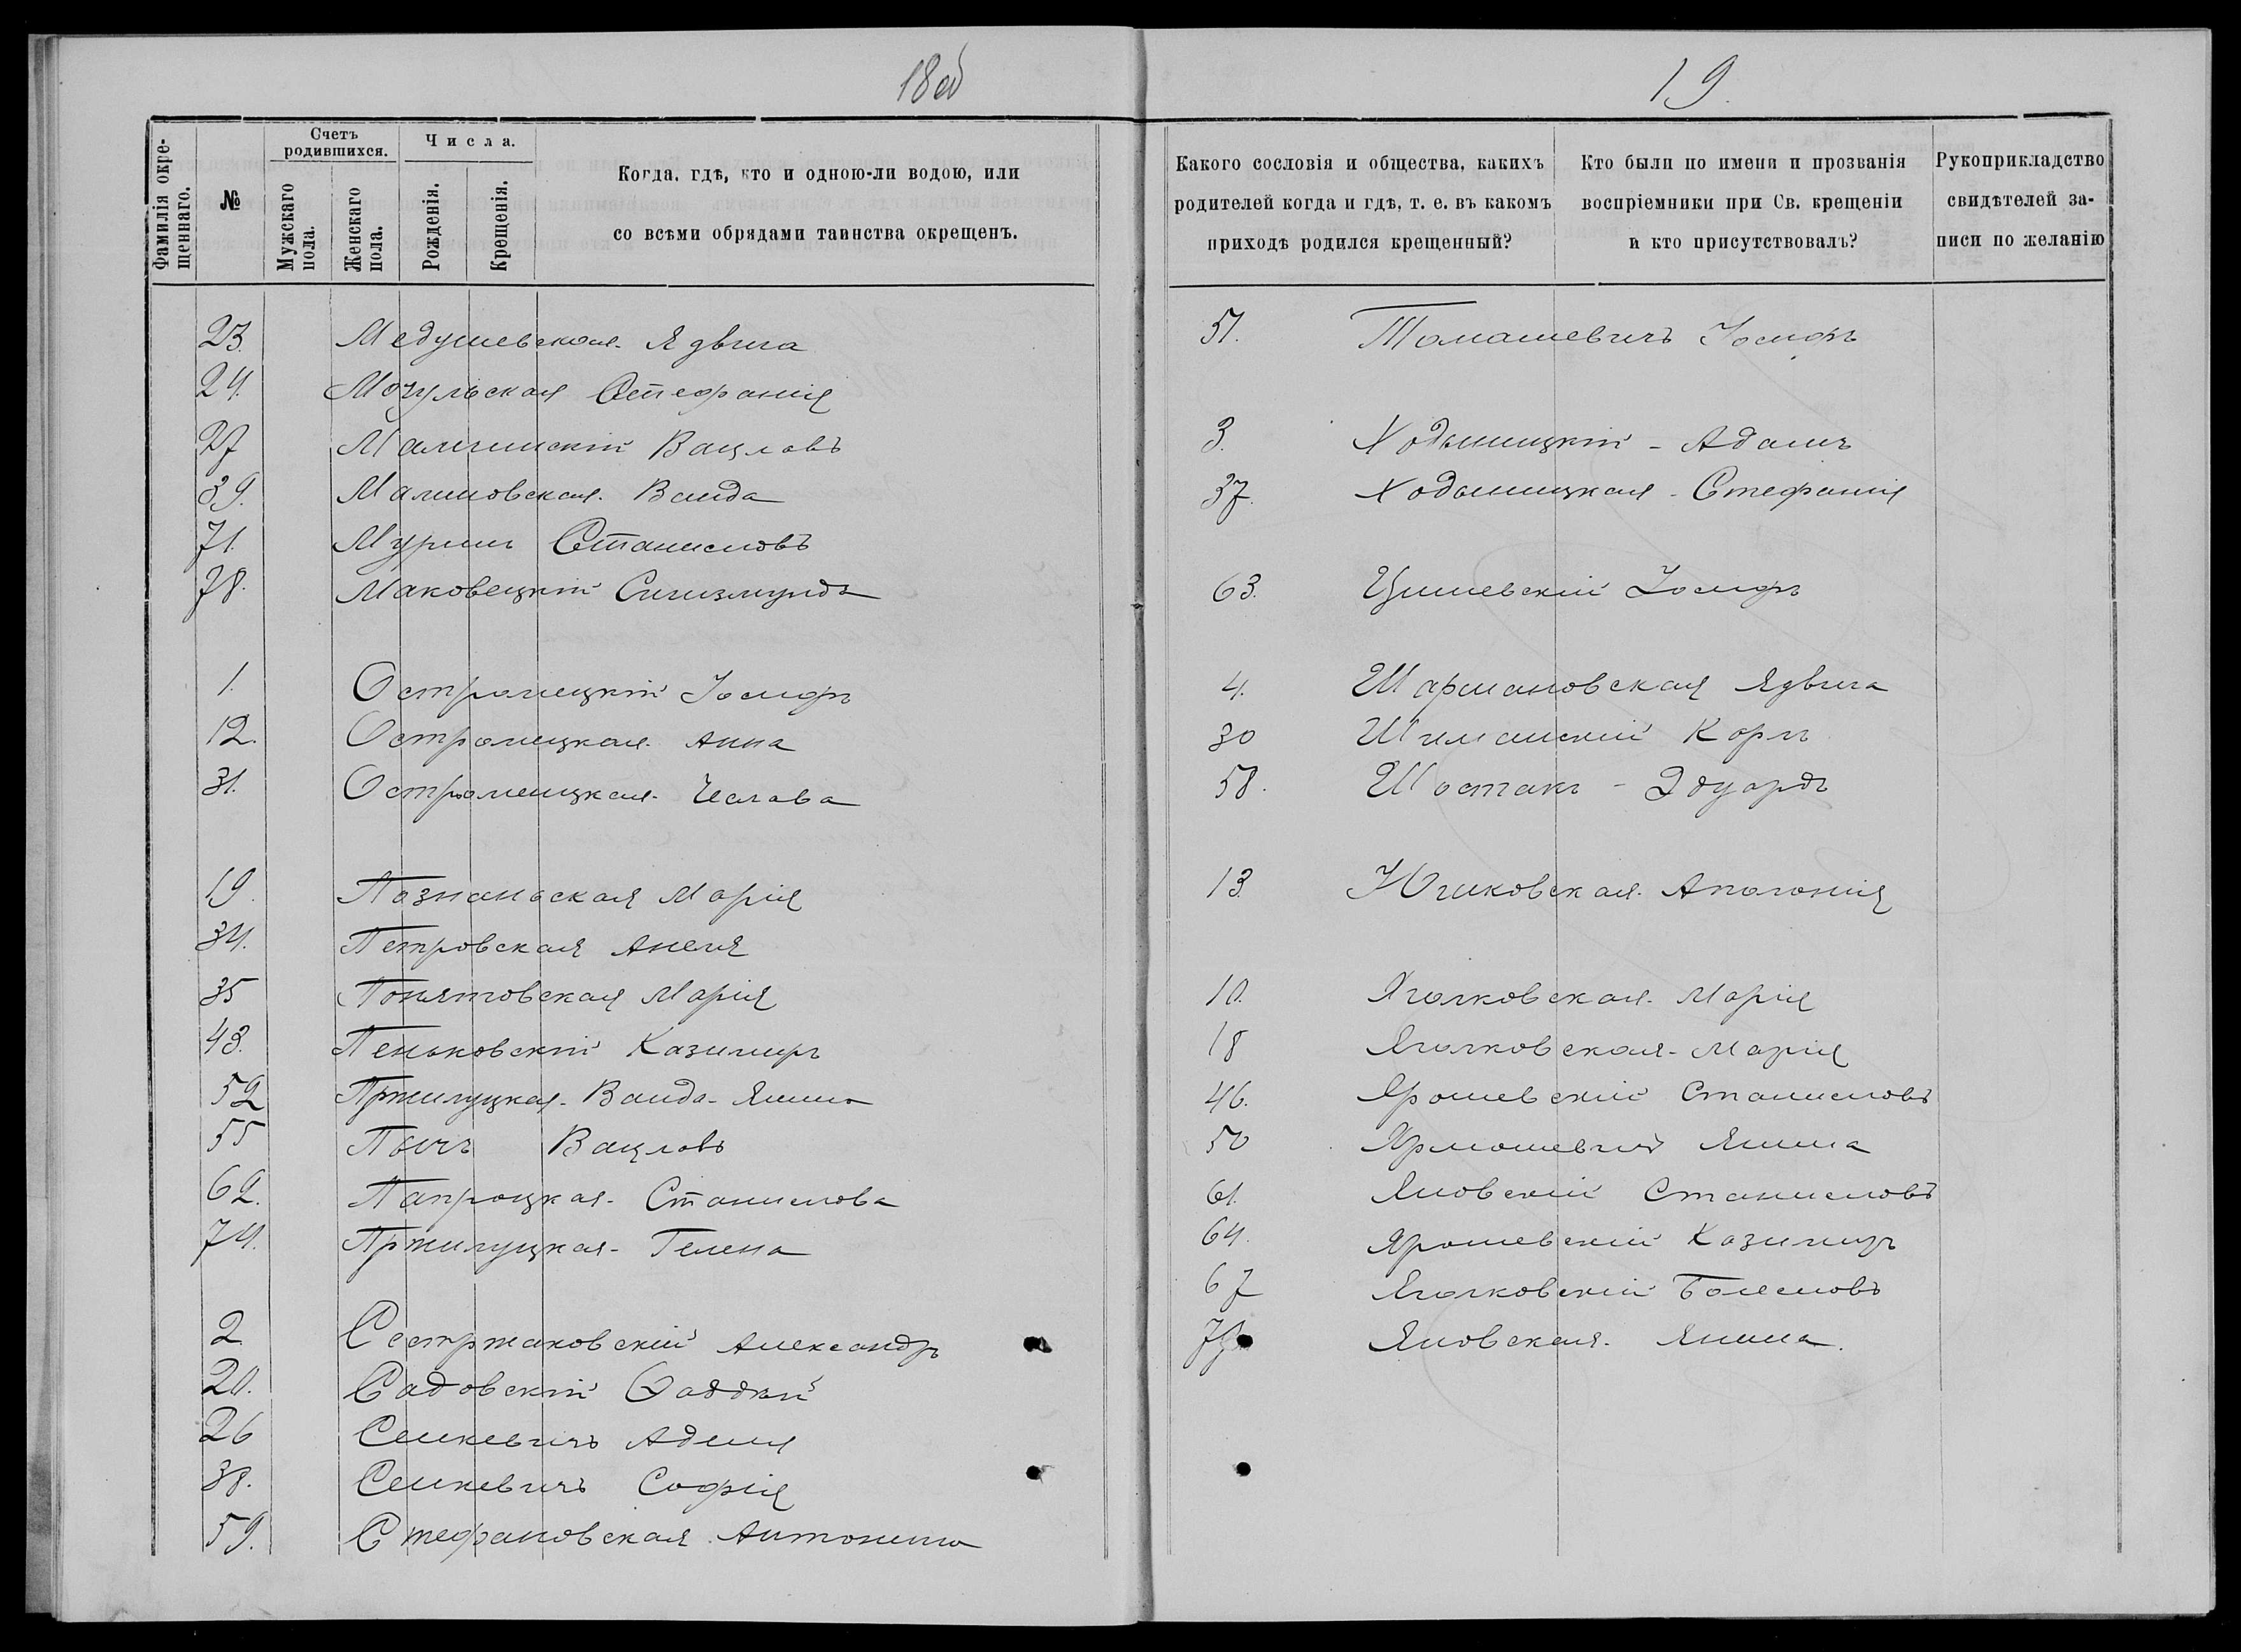 18об
19.
Фамилія окрещеннаго.
№
Счетъ родившихся.
Мужескаго пола.
Женскаго пола.
Числа.
Рожденія.
Крещенія.
Когда, гдѣ, кто и одною-ли водою, или
со всѣми обрядами таинства окрещенъ.
Какого сословія и общества, какихъ
родителей когда и гдѣ, т. е. въ какомъ
приходѣ родился крещенный?
Кто были по имени и прозванія
воспріемники при Св. крещеніи
и кто присутствовалъ?
Рукоприкладство
свидѣтелей за-
писи по желанію
23. Медушевская Ядвига
24. Мочульская Стефанія
27 Вацлавъ
39. Малиновская Ванда
71. Станиславъ
78. Маковецкій Сигизмундъ
1. Остромецкій Іосифъ
12. Остромецкая Анна
31. Остромецкая Чеслава
19. Познаньская Марія
34. Петровская Анеля
35 Понятовская Марія
43. Пеньковскій Казимиръ
52 Пржилуцкая Ванда-Янина
55 Пычъ Вацлавъ
62. Папроцкая Станислава
74. Пржилуцкая Гелена
2. Сестржаковскій Александръ
20. Садовскій Ѳаддей
26 Сенкевичъ Аделя
38. Сенкевичъ Софія
59. Стефановская Антонина
51. Томашевичъ Іосифъ
3. Ходыницкій - Адамъ
37. Ходыницкая - Стефанія
63. Цишевскій Іосифъ
4. Шармановская Ядвига
30 Шиманскій Карлъ
58. Шостакъ - Эдуардъ
13 Юшковская Аполонія
10. Яголковская Марія
18 Яголковская Марія
46. Ярошевскій Станиславъ
50 Ярмошевичъ Янина
61. Яновскій Станиславъ
64. Ярошевскій Казимиръ
67 Яголковскій Болеславъ
Яновская Янина.